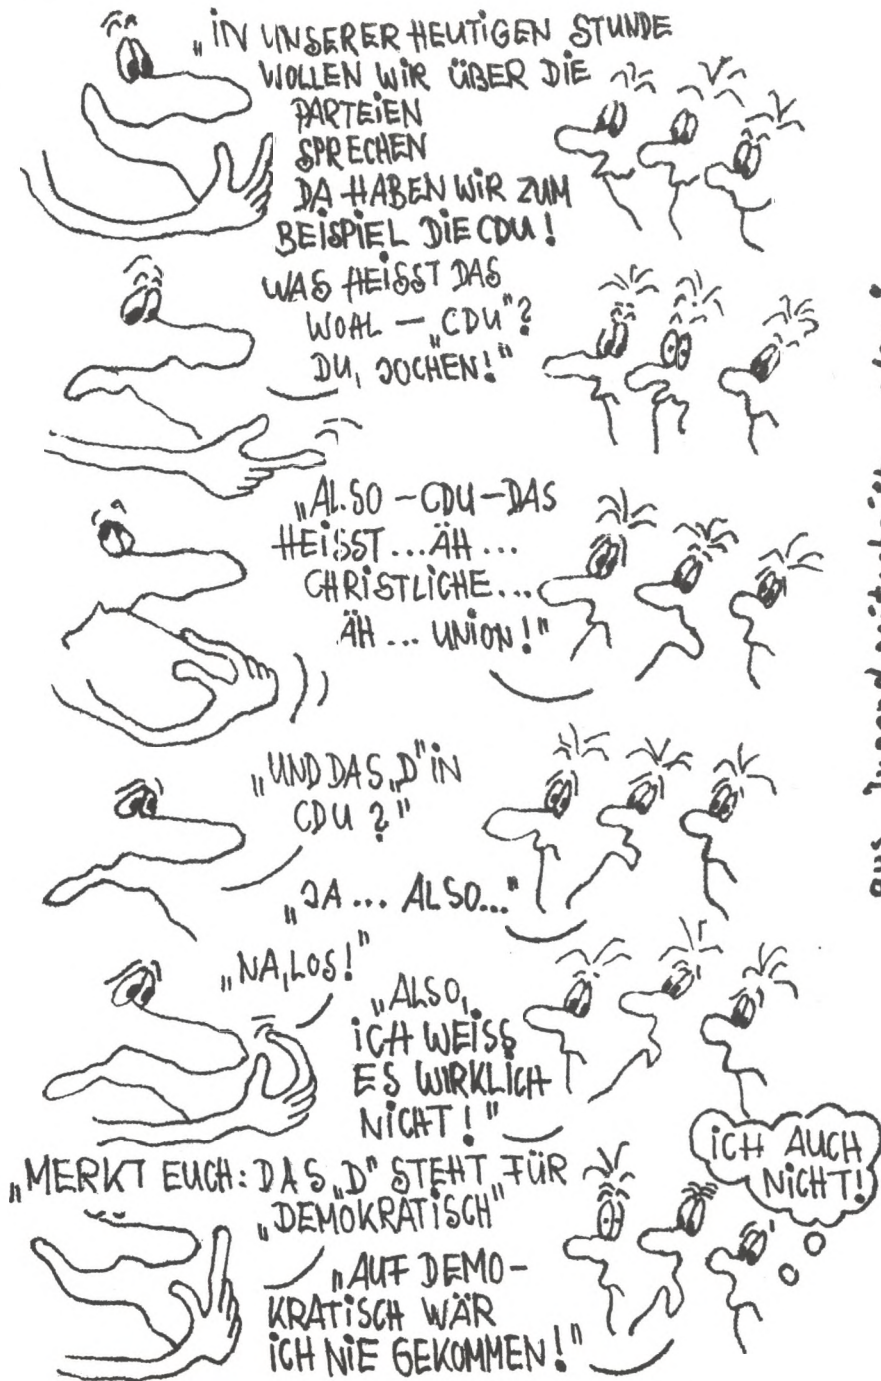 „IN UNSERER HEUTIGEN STUNDE
WOLLEN WIR ÜBER DIE
PARTEIEN
SPRECHEN
DA HABEN WIR ZUM
BEISPIEL DIE CDU!
WAS HEISST DAS
WOHL – „CDU"?
DU, JOCHEN!"
„ALSO – CDU – DAS
HEISST ... ÄH ...
CHRISTLICHE ...
ÄH ... UNION!"
„UND DAS „D" IN
CDU?"
„JA ... ALSO ..."
„NA, LOS!"
„ALSO,
ICH WEISS
ES WIRKLICH
NICHT!"
„MERKT EUCH: DAS „D" STEHT FÜR
„DEMOKRATISCH"
ICH AUCH
NICHT!
„AUF DEMO-
KRATISCH WÄR
ICH NIE GEKOMMEN!"
aus